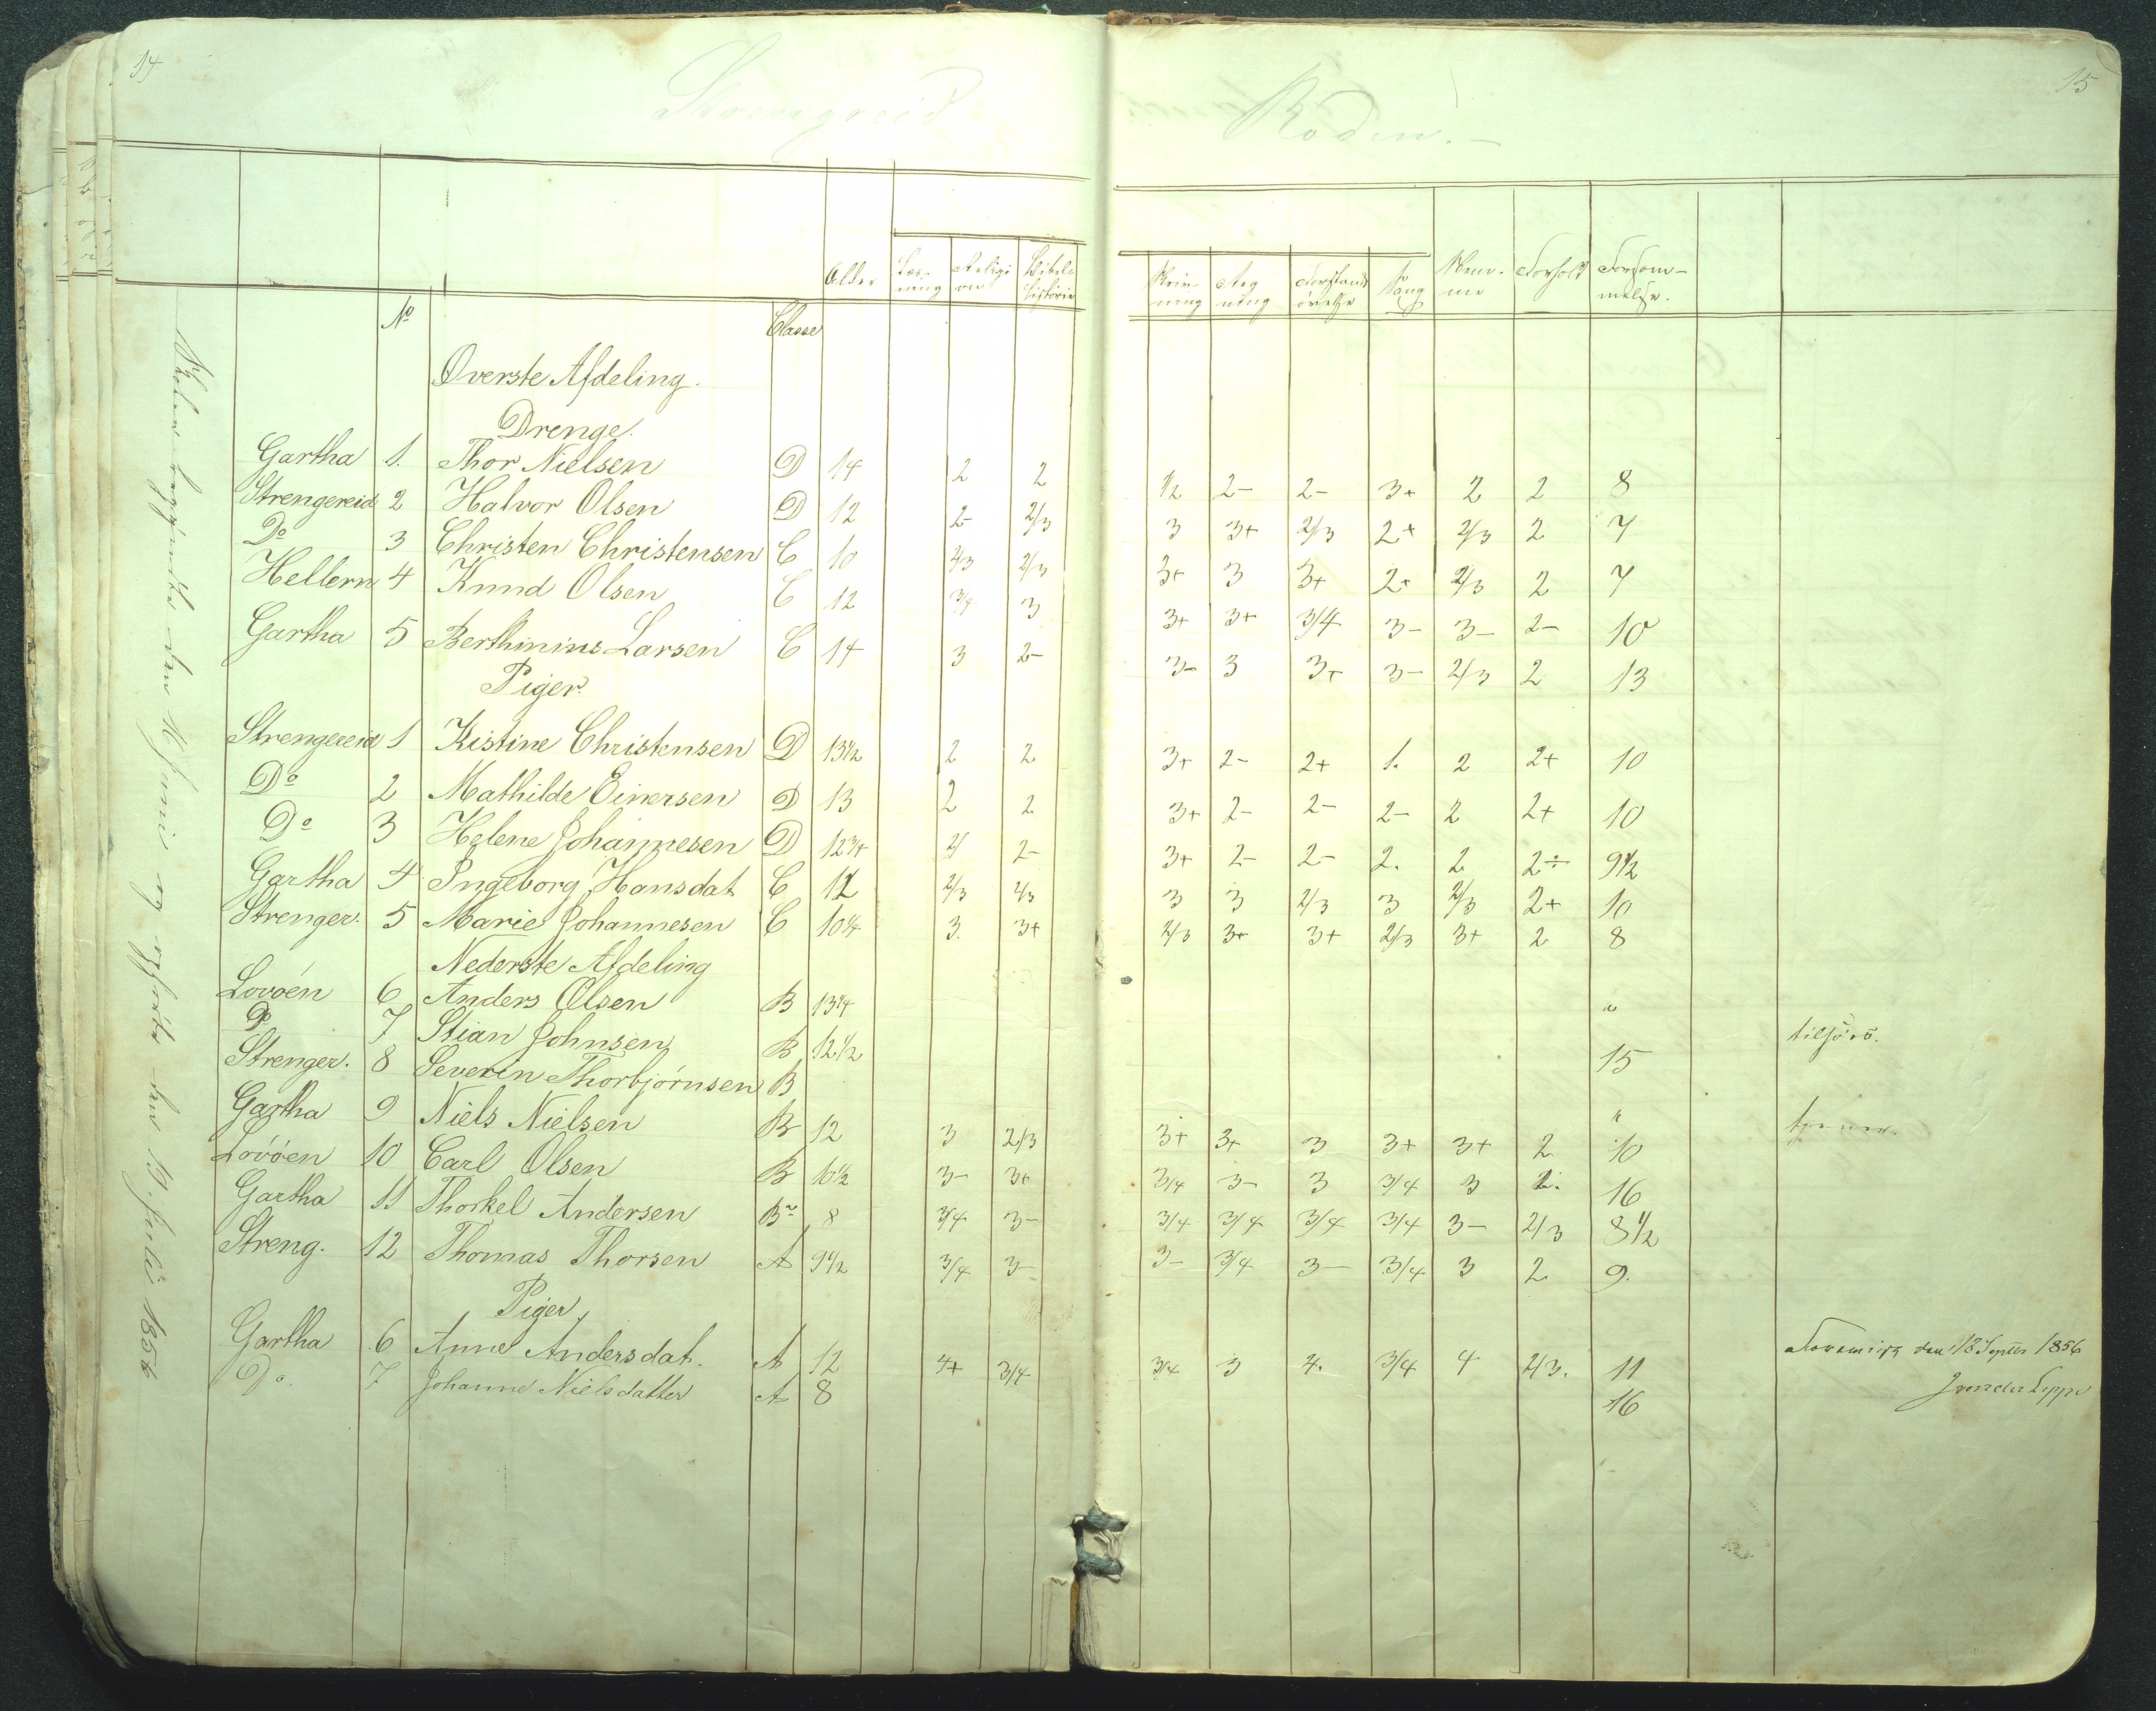 14
15
Strengereid
Roden.-
Alder Læsning Religion Bibelhistorie Skrivning Regning Forstandsøvelse Sang Nemme Forhold Forsømmelse.
No Classe
Øverste Afdeling.
Drenge.
Gartha 1. Thor Nielsen D 14 2 2 1/2 2- 2- 3+ 2 2 8
Strengereid 2 Halvor Olsen D 12 2- 2/3 3 3+ 2/3 2+ 2/3 2 7
Do 3 Christen Christensen C 10 2/3 2/3 3+ 3 3+ 2+ 2/3 2 7
Hellern 4 Knud Olsen C 12 3/4 3 3+ 3+ 3/4 3- 3- 2- 10
Gartha 5 Berthinius Larsen C 14 3 2- 3- 3 3+ 3- 2/3 2 13
Piger.
Strengereid 1 Kistine Christensen D 13 1/2 2 2 3+ 2- 2+ 1. 2 2+ 10
Do 2 Mathilde Einersen D 13 2 2 3+ 2- 2- 2- 2 2+ 10
Do 3 Helene Johannesen D 12 3/4 2/ 2- 3+ 2- 2- 2. 2 2÷ 9 1/2
Gartha 4 Ingeborg Hansdat C 12 2/3 2/3 3 3 2/3 3 2/3 2+ 10
Strenger. 5 Marie Johannesen C 10 1/4 3. 3+ 2/3 3+ 3+ 2/3 3+ 2 8
Nederste Afdeling
Lovøen 6 Anders Olsen B 13 1/4 "
Do 7 Stian Johnsen B 12 1/2 15 tilsøes.
Strenger. 8 Severin Thorbjørnsen B "
Gartha 9 Niels Nielsen B 12 3 2/3 3+ 3+ 3 3+ 3+ 2 10
Lovøen 10 Carl Olsen B 10 1/2 3- 3+ 3/4 3- 3 3/4 3 2. 16
Gartha 11 Thorkel Andersen B 8 3/4 3- 3/4 3/4 3/4 3/4 3- 2/3 8 1/2
Streng. 12 Thomas Thorsen A 9 1/2 3/4 3- 3- 3/4 3- 3/4 3 2 9.
Piger,
Gartha 6 Anne Andersdat. A 12 4+ 3/4 3/4 3 4. 3/4 4 2/3. 11
Do. 7 Johanne Nielsdatter A 8 16
den 18 Septbr 1856
J von der Lippe
Skolen begyndte den 16 Juni og ophørte den 12. Juli 1856